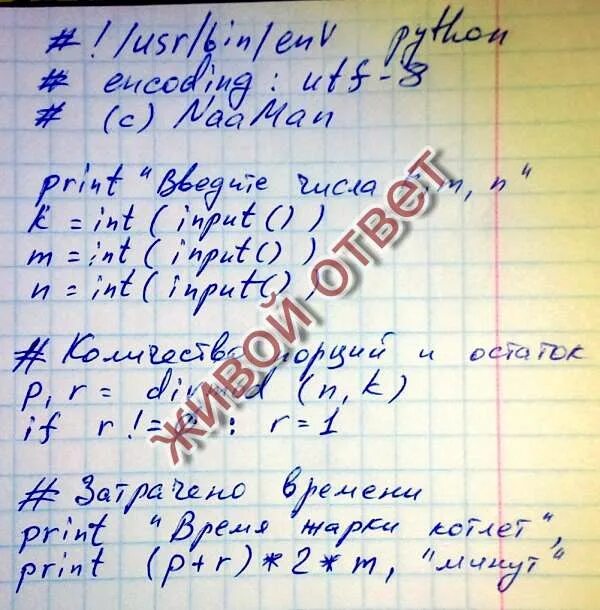 #!/usr/bin/env python
# encoding: utf-8
# (c) NaaMan
print "Введите числа k, m, n"
k = int(input())
m = int(input())
n = int(input())
# Количество порций и остаток
p, r = divmod (n, k)
if r != 0 : r = 1
# Затрачено времени
print "Время жарки котлет",
print (p+r)*2*m, "минут"
ЖИВОЙ ОТВЕТ